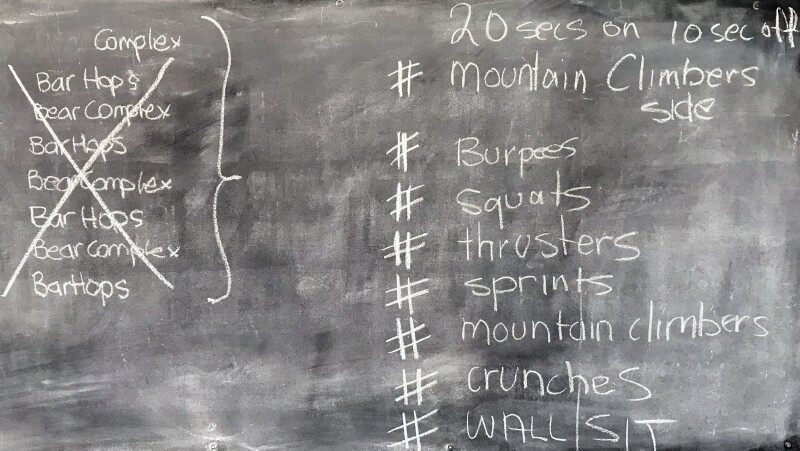 Complex
Bar Hops
Bear Complex
Bar Hops
Bear Complex
Bar Hops
Bear Complex
Bar Hops
20 secs on 10 sec off
# mountain Climbers
side
# Burpees
# squats
# thrusters
# sprints
# mountain climbers
# crunches
# WALL SIT